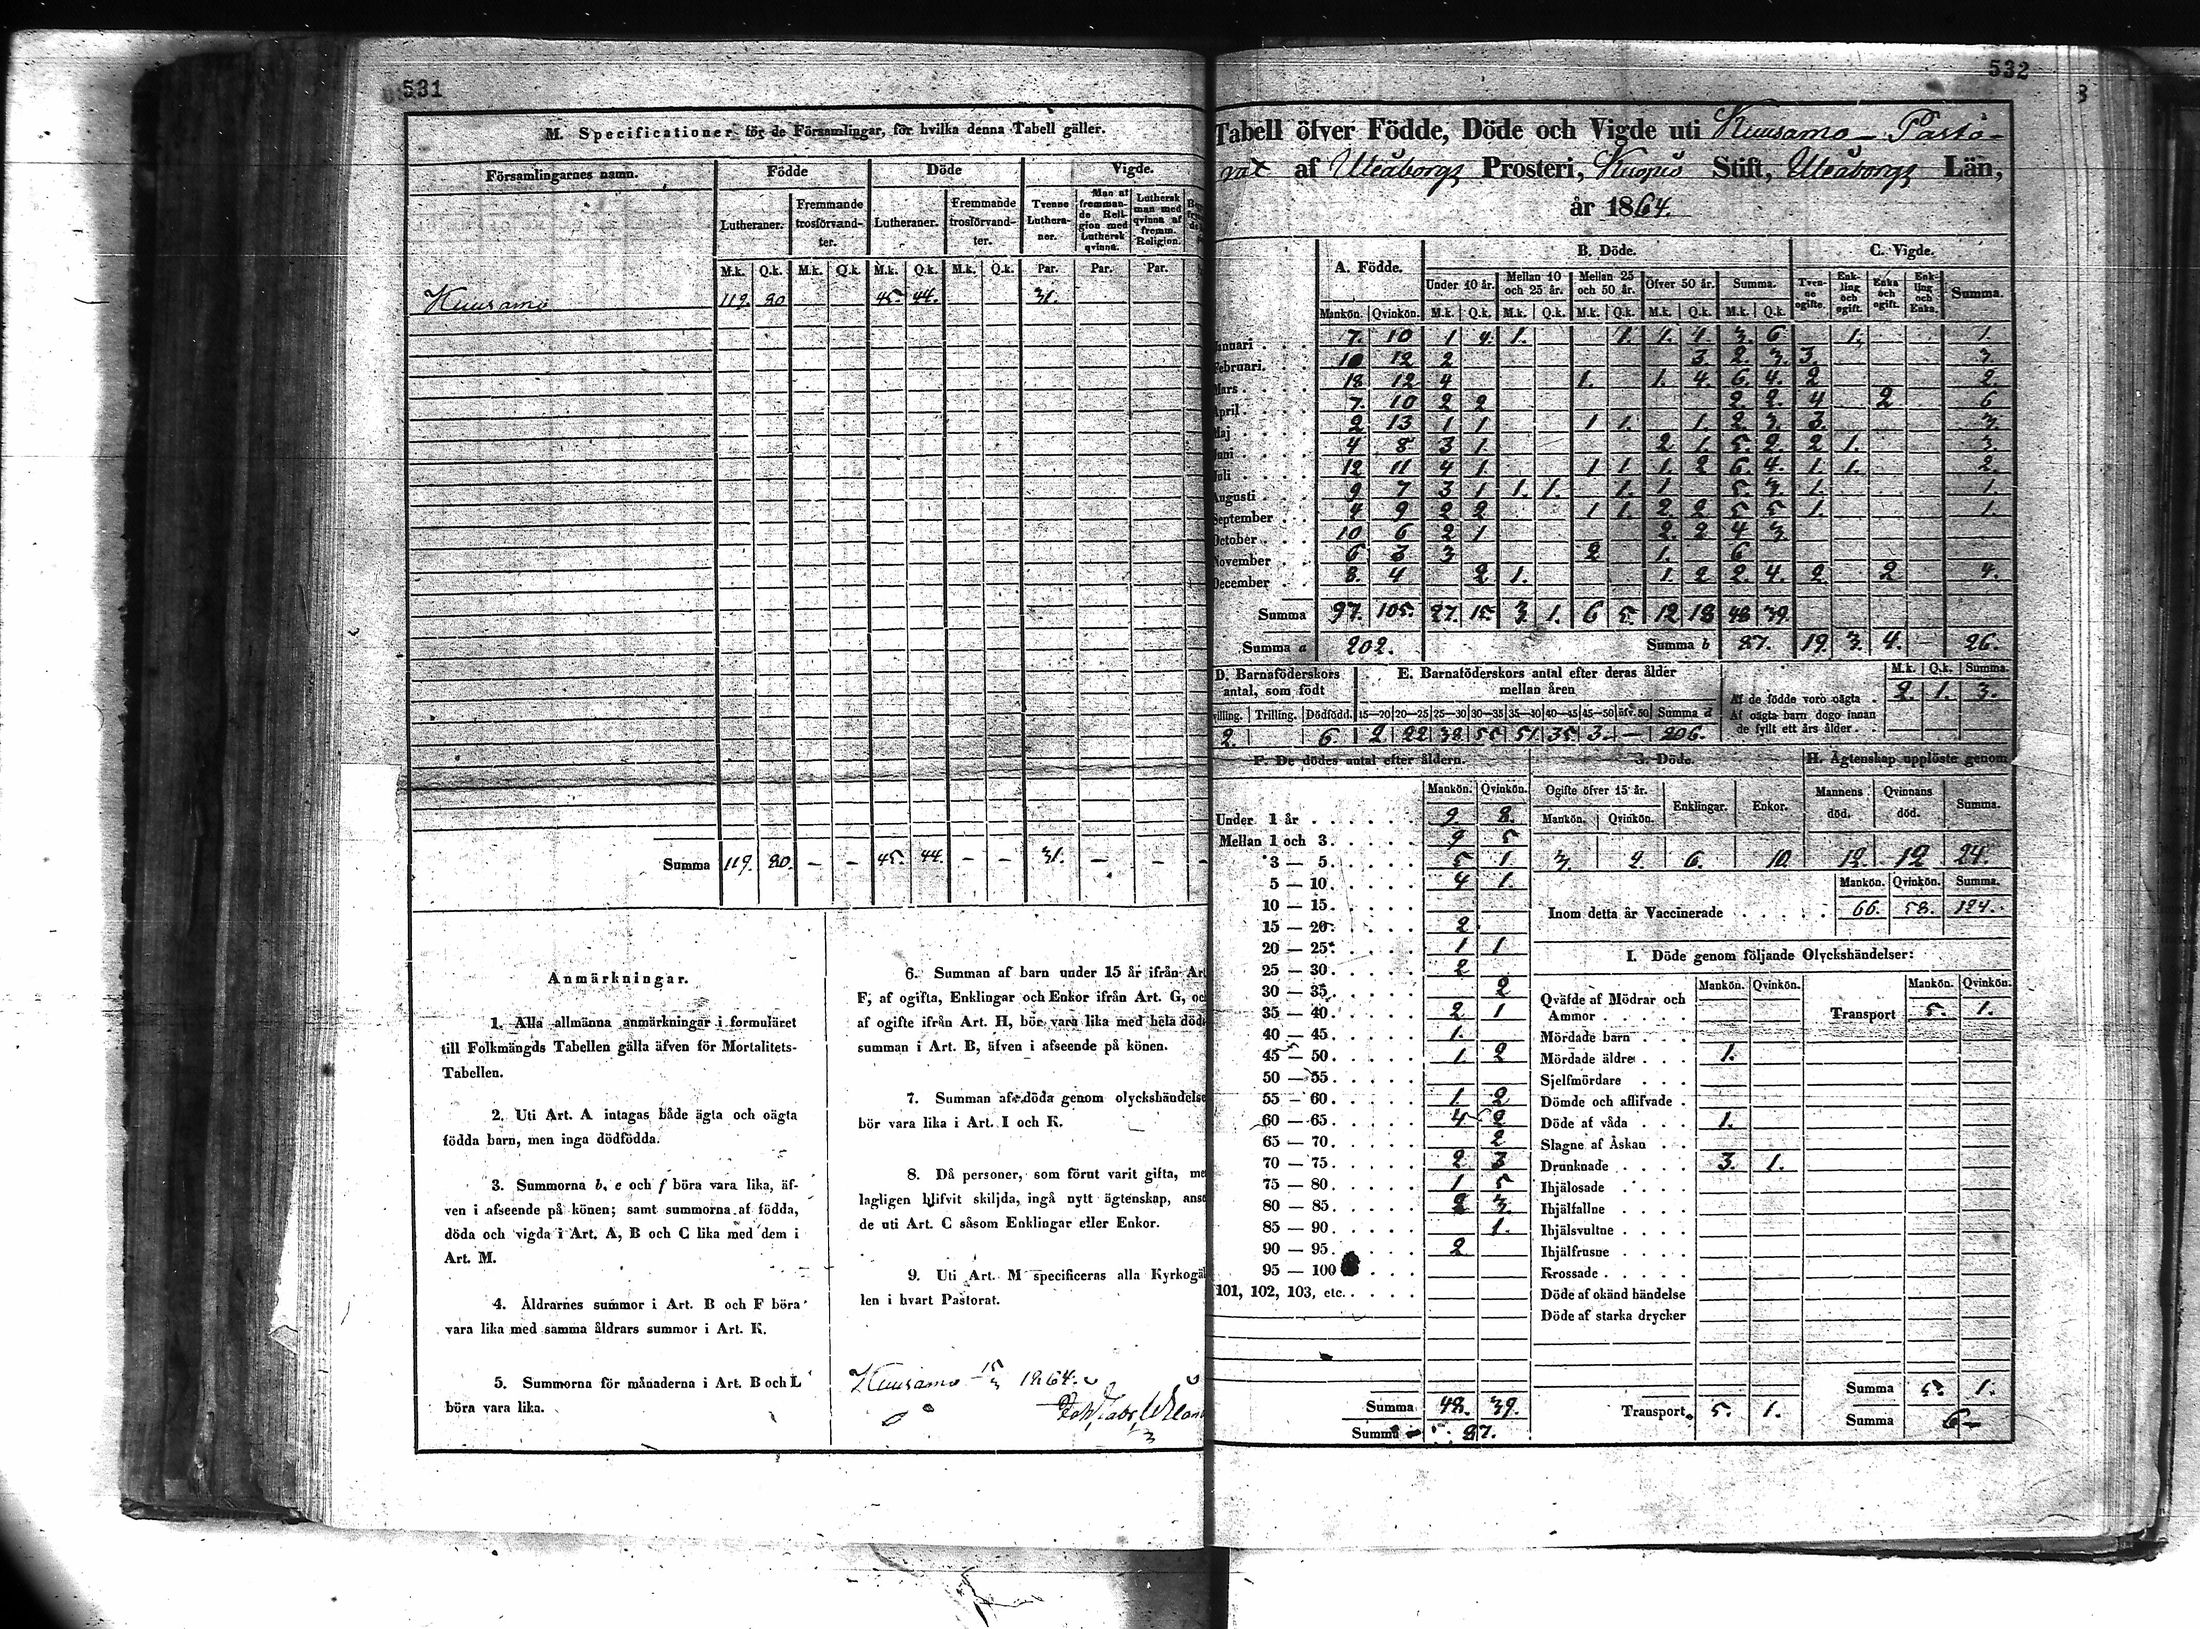 531
M. Specificationer för de Församlingar, för hvilka denna Tabell gäller.
Församlingarnes namn. Födde Döde Vigde.
Lutheraner. Fremmande trosförvandter. Lutheraner. Fremmande trosförvandter. Tvenne Lutheraner. Man af fremmande Religion med Luthersk qvinna. Luthersk man med qvinna af fremm. Religion.
M.k. Q.k. M.k. Q.k. M.k. Q.k. M.k. Q.k. Par. Par. Par.
Kuusamo 119. 80 45. 44. 31.
Summa 119. 80. — — 45. 44. — — 31. — — —
Anmärkningar.
1. Alla allmänna anmärkningar i formuläret
till Folkmängds Tabellen gälla äfven för Mortalitets-
Tabellen.
2. Uti Art. A intagas både ägta och oägta
födda barn, men inga dödfödda.
3. Summorna b, e och f böra vara lika, äf-
ven i afseende på könen; samt summorna af födda,
döda och vigda i Art. A, B och C lika med dem i
Art. M.
4. Åldrarnes summor i Art. B och F böra
vara lika med samma åldrars summor i Art. K.
5. Summorna för månaderna i Art. B och L
böra vara lika.
6. Summan af barn under 15 år ifrån Art
F, af ogifta, Enklingar och Enkor ifrån Art. G, och
af ogifte ifrån Art. H, bör vara lika med hela död-
summan i Art. B, äfven i afseende på könen.
7. Summan af döda genom olyckshändelse
bör vara lika i Art. I och K.
8. Då personer, som förut varit gifta, me
lagligen blifvit skiljda, ingå nytt ägtenskap, anse
de uti Art. C såsom Enklingar eller Enkor.
9. Uti Art. M specificeras alla Kyrkogäl
len i hvart Pastorat.
Kuusamo 15/3 1864.
532
Tabell öfver Födde, Döde och Vigde uti Kuusamo Pasto-
rat af Uleåborgs Prosteri, Kuopio Stift, Uleåborgs Län,
år 1864.
A. Födde. B. Döde. C. Vigde.
Under 10 år. Mellan 10 och 25 år. Mellan 25 och 50 år. Öfver 50 år. Summa. Tvenne ogifte. Enkling och ogift. Enka och ogift. Enkling och Enka. Summa.
Mankön. Qvinkön. M.k. Q.k. M.k. Q.k. M.k. Q.k. M.k. Q.k. M.k. Q.k.
Januari 7. 10 1 4. 1. 1. 1. 1. 3. 6 1. 1.
Februari 10 12 2 3. 2. 3. 3. 3.
Mars 18 12 4 1. 1. 4. 6. 4. 2 2.
April 7. 10 2 2 2 2. 4 2 6
Maj 2 13 1 1 1 1. 1. 2 3. 3. 3
Juni 4 8 3 1. 2 1. 5. 2. 2 1. 3
Juli 12 11 4 1. 1 1 1. 2 6. 4. 1. 1. 2.
Augusti 9 7 3 1 1. 1. 1. 1. 5. 3. 1. 1
September 4 9 2 2 1 1. 2 2 5 5 1. 1.
October 10 6 2 1 2. 2 4 3
November 6 3 3 2 1. 6
December 8. 4 2 1. 1. 2 2. 4. 2. 2 4.
Summa 97. 105. 27. 15. 3. 1. 6 5. 12 18 48 39.
Summa a 202. Summa b 87. 19. 3. 4. — 26.
D. Barnaföderskors antal, som födt
E. Barnaföderskors antal efter deras ålder mellan åren
M.k. Q.k. Summa.
villing. Trilling. Dödfödd. 15—20 20—25 25—30 30—35 35—40 40—45 45—50 öfv. 50 Summa d
2. 6. 2 22 38 55 51 35 3. — 206.
Af de födde voro oägta . 2. 1. 3.
Af oägta barn dogo innan
de fyllt ett års ålder . .
F. De dödes antal efter åldern. G. Döde. H. Ägtenskap upplöste genom
Mankön. Qvinkön. Ogifte öfver 15 år. Enklingar. Enkor. Mannens död. Qvinnans död. Summa.
Mankön. Qvinkön.
3. 2. 6. 10. 12. 12 24.
Mankön. Qvinkön. Summa.
Inom detta år Vaccinerade 66. 58. 124.
Under 1 år 9 8.
Mellan 1 och 3 9 5
3 — 5 5 1
5 — 10 4 1.
10 — 15
15 — 20 2
20 — 25 1 1
25 — 30 2
30 — 35 2
35 — 40 2 1
40 — 45 1.
45 — 50 1 2
50 — 55
55 — 60 1 2
60 — 65 4 2
65 — 70 2
70 — 75 2 3
75 — 80 1 5
80 — 85 2 3.
85 — 90 1.
90 — 95 2
95 — 100
101, 102, 103, etc.
Summa 48. 39.
Summa 87.
I. Döde genom följande Olyckshändelser:
Mankön. Qvinkön. Mankön. Qvinkön.
Qväfde af Mödrar och
Ammor Transport 5. 1.
Mördade barn
Mördade äldre 1.
Sjelfmördare
Dömde och aflifvade
Döde af våda 1.
Slagne af Åskan
Drunknade 3. 1.
Ihjälosade
Ihjälfallne
Ihjälsvultne
Ihjälfrusne
Krossade
Döde af okänd händelse
Döde af starka drycker
Summa 5. 1.
Transport 5. 1. Summa 6—